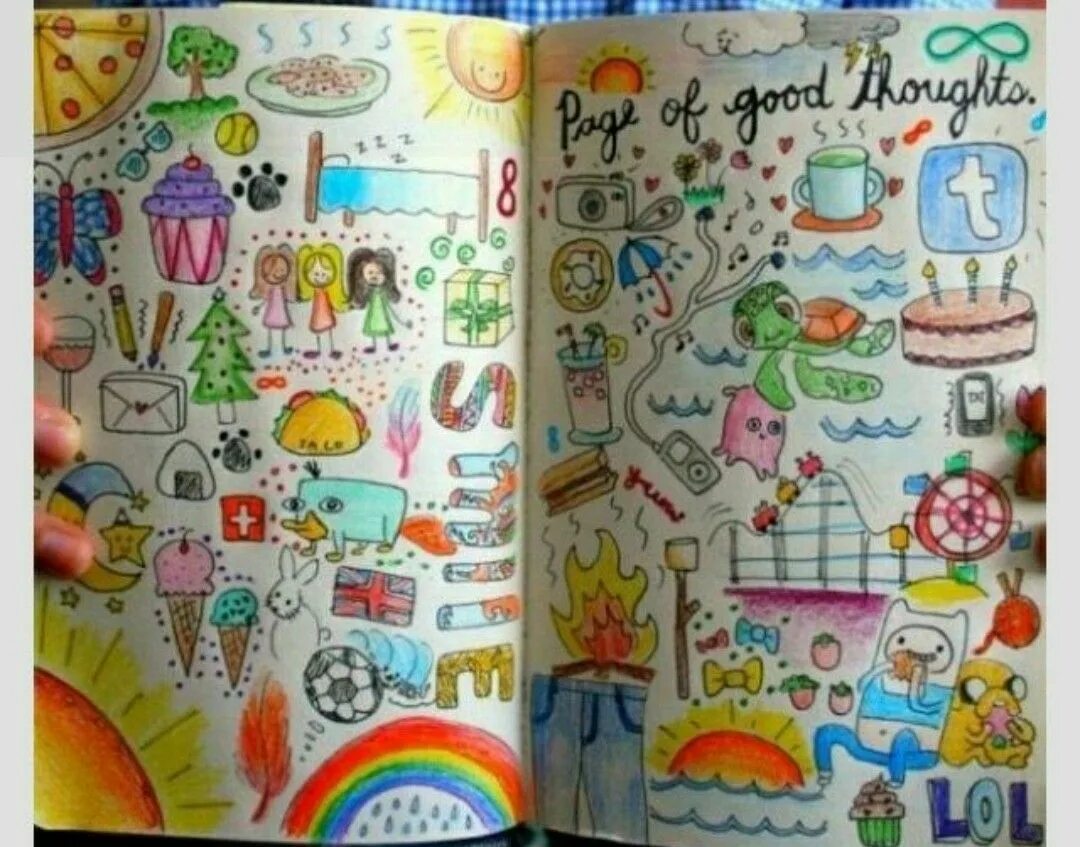 z z z
8
TACO
SMILE
Page of good thoughts.
t
yum!
LOL